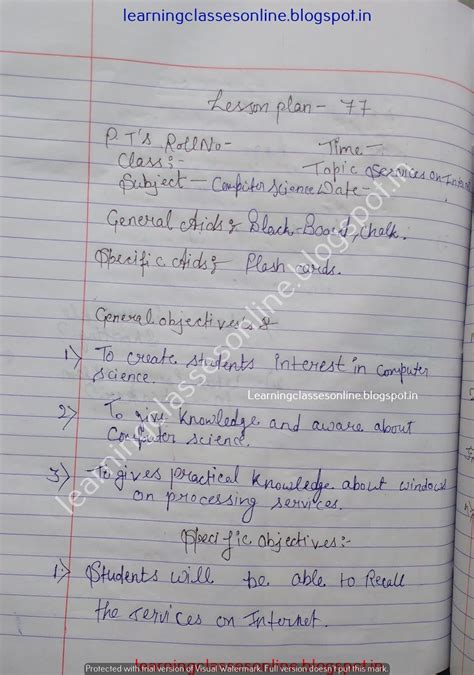 learningclassesonline.blogspot.in
Lesson plan - 77
P.T's RollNo-
Time-
Class:-
Topic Services on
Subject - Computer Science Date-
General Aids:- Black-Board, chalk.
Specific Aids:- Flash cards.
General objectives's :-
1) To create students interest in computer
science.
Learningclassesonline.blogspot.in
2) To give knowledge and aware about
computer science.
3) To gives practical knowledge about windows
on processing services.
Specific objectives:-
1) Students will be able to Recall
the services on Internet.
learningclassesonline.blogspot.in
Protected with trial version of Visual Watermark. Full version doesn't put this mark.
learningclassesonline.blogspot.in